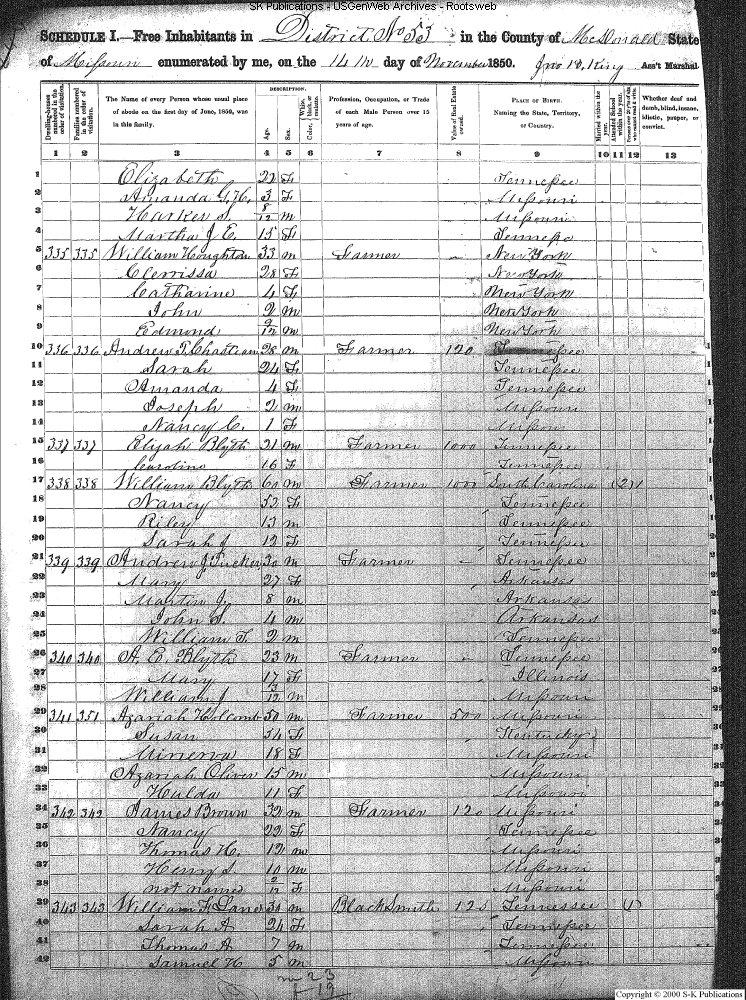 SK Publications - USGenWeb Archives - Rootsweb
SCHEDULE I.—Free Inhabitants in District No 53 in the County of McDonald State
of Missouri enumerated by me, on the 14th day of November 1850. Jno Ass't Marshal
DESCRIPTION.
Dwelling-houses numbered in the order of visitation. Families numbered in the order of visitation. The Name of every Person whose usual place of abode on the first day of June, 1850, was in this family. Age. Sex. White, black, or mulatto. Color Profession, Occupation, or Trade of each Male Person over 15 years of age. Value of Real Estate owned. PLACE OF BIRTH. Naming the State, Territory, or Country. Married within the year. Attended School within the year. Persons over 20 y'rs of age who cannot read & write. Whether deaf and dumb, blind, insane, idiotic, pauper, or convict.
1 2 3 4 5 6 7 8 9 10 11 12 13
1 Elizabeth 22 F Tennessee
2 Amanda 3 F Missouri
3 8/12 m Missouri
4 Martha J E. 15 F
5 335 335 William Houghton 33 m Farmer - New York
6 Clerrissa 28 F New York
7 Catharine 4 F New York
8 John 2 m New York
9 Edmund 9/12 m New York
10 336 336 Andrew 28 m Farmer 120 Tennessee
11 Sarah 24 F Tennessee
12 Amanda 4 F Tennessee
13 Joseph 2 m Missouri
14 Nancy C. 1 F Missouri
15 337 337 Elijah Blyth 21 m Farmer 1000 Tennessee
16 Caroline 16 F Tennessee
17 338 338 William Blyth 60 m Farmer 1000 South Carolina (2) 1
18 Nancy 53 F Tennessee
19 Riley 13 m Tennessee
20 Sarah J 12 F Tennessee
21 339 339 Andrew J Tucker 30 m Farmer - Tennessee
22 Mary 27 F Arkansas
23 Martin J. 8 m Arkansas
24 John 4 m Arkansas
25 William T. 2 m Tennessee
26 340 340 A. E. Blyth 23 m Farmer - Tennessee
27 Mary 17 F Illinois
28 William J 3/12 m Missouri
29 341 351 Azariah Holcomb 50 m Farmer 500 Missouri
30 Susan 34 F Kentucky
31 Minerva 18 F Missouri
32 Azariah Oliver 15 m Missouri
33 Hulda 11 F Missouri
34 342 342 James Brown 32 m Farmer 120 Missouri
35 Nancy 22 F Tennessee
36 Thomas H. 12 m Missouri
37 Henry S. 10 m Missouri
38 not named 2/12 F Missouri
39 343 343 William F Lane 30 m BlackSmith 125 Tennessee (1)
40 Sarah A 24 F Tennessee
41 Thomas A 7 m Tennessee
42 Samuel H 5 m Missouri
m 23
19
Copyright © 2000 S-K Publications